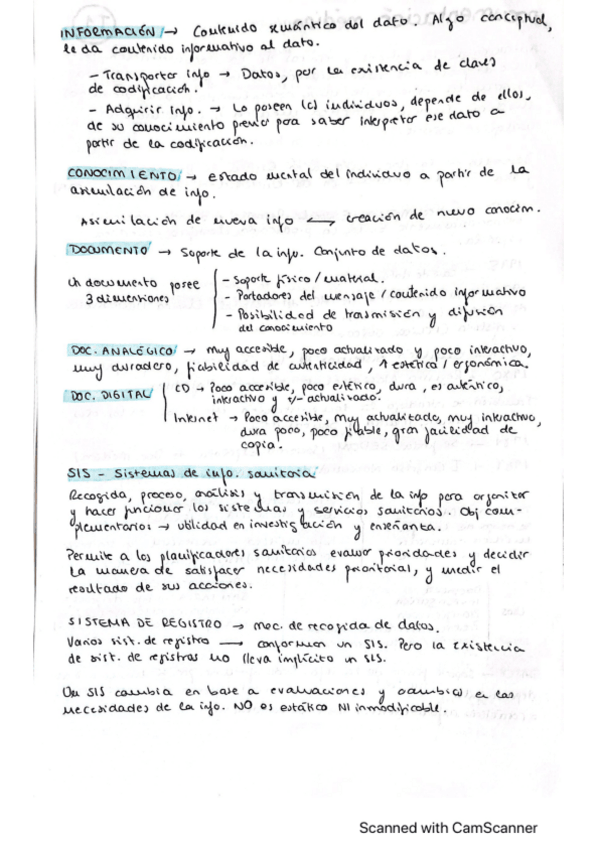 INFORMACIÓN → Contenido semántico del dato. Algo conceptual,
le da contenido informativo al dato.
- Transportar info → Datos, por la existencia de claves
de codificación.
- Adquirir info. → Lo poseen los individuos, depende de ellos,
de su conocimiento previo para saber interpretar ese dato a
partir de la codificación.
CONOCIMIENTO → estado mental del individuo a partir de la
asimilación de info.
Asimilación de nueva info ↔ creación de nuevo conocim.
DOCUMENTO → Soporte de la info. Conjunto de datos.
Un documento posee
3 dimensiones
- Soporte físico / material.
- Portadores del mensaje / contenido informativo
- Posibilidad de trasmisión y difusión
del conocimiento
DOC. ANALÓGICO → muy accesible, poco actualizado y poco interactivo,
muy duradero, fiabilidad de autenticidad, ↑ estético / ergonómica.
DOC. DIGITAL
CD → Poco accesible, poco estético, dura, es auténtico,
interactivo y +/- actualizado.
Internet → Poco accesible, muy actualizado, muy interactivo,
dura poco, poco fiable, gran facilidad de
copia.
SIS - Sistemas de info. sanitaria
Recogida, proceso, análisis y transmisión de la info para organizar
y hacer funcionar los sistemas y servicios sanitarios. Obj com-
plementarios → utilidad en investigación y enseñanza.
Permite a los planificadores sanitarios evaluar prioridades y decidir
la manera de satisfacer necesidades prioritarias, y medir el
resultado de sus acciones.
SISTEMA DE REGISTRO → mec. de recogida de datos.
Varios sist. de registro → conforman un SIS. Pero la existencia
de sist. de registros no lleva implícito un SIS.
Un SIS cambia en base a evaluaciones y cambios en las
necesidades de la info. NO es estático NI inmodificable.
Scanned with CamScanner